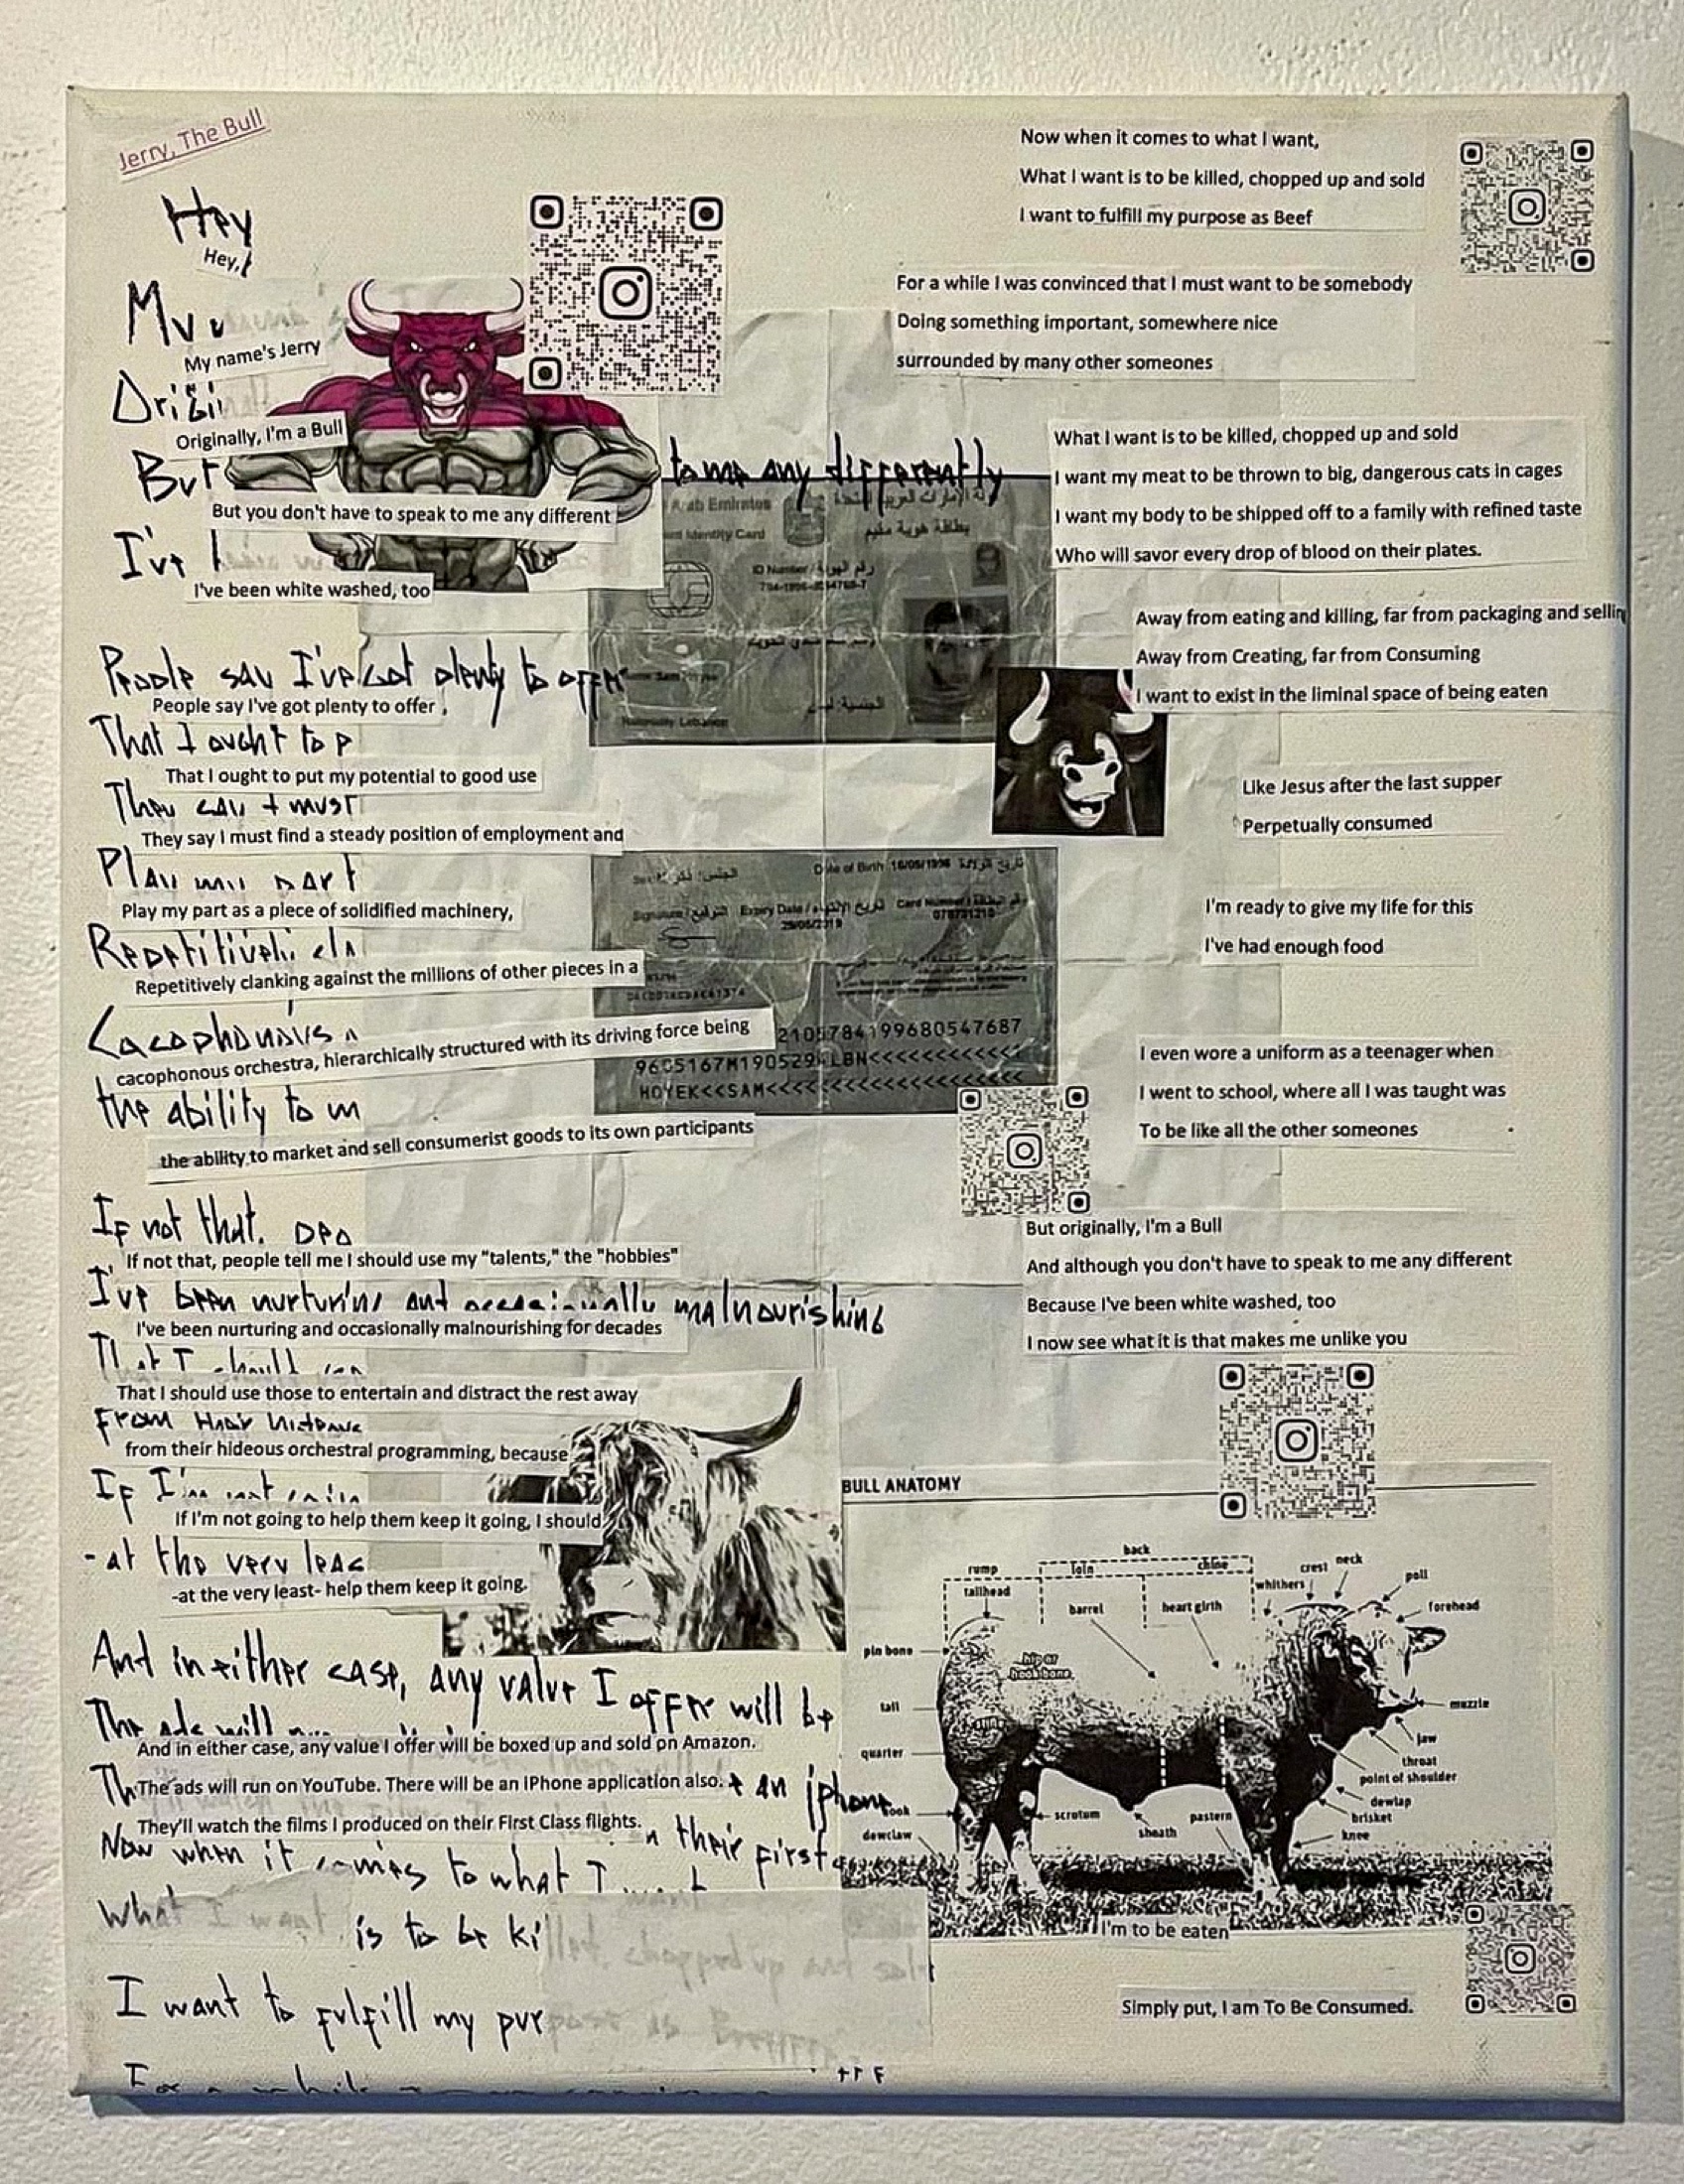 Jerry, The Bull
Hey
Hey,
My name's Jerry
Originally, I'm a Bull
But
to me any differently
But you don't have to speak to me any different
I've
I've been white washed, too
People say I've got plenty to offer
People say I've got plenty to offer ,
That I ought to p
That I ought to put my potential to good use
They say I must
They say I must find a steady position of employment and
Play my part
Play my part as a piece of solidified machinery,
Repetitively cla
Repetitively clanking against the millions of other pieces in a
Cacophonous
cacophonous orchestra, hierarchically structured with its driving force being
the ability to m
the ability to market and sell consumerist goods to its own participants
If not that,
If not that, people tell me I should use my "talents," the "hobbies"
I've been nurturing and occasionally malnourishing
I've been nurturing and occasionally malnourishing for decades
That I should
That I should use those to entertain and distract the rest away
From their hideous
from their hideous orchestral programming, because
If I'm not goin
If I'm not going to help them keep it going, I should
-at the very leas
-at the very least- help them keep it going.
And in either case, any value I offer will be
The ads will
And in either case, any value I offer will be boxed up and sold on Amazon.
The ads will run on YouTube. There will be an iPhone application also.
an iphone
They'll watch the films I produced on their First Class flights.
their first
Now when it comes to what I want
What I want is to be kil
I want to fulfill my pur
Arab Emirates
Identity Card
بطاقة هوية مقيم
ID Number /
رقم الهوية
Date of Birth
Signature /
Expiry Date /
Card Number
HOYEK<<SAM<<<<<<<<<<<<<<<<<<<<
Now when it comes to what I want,
What I want is to be killed, chopped up and sold
I want to fulfill my purpose as Beef
For a while I was convinced that I must want to be somebody
Doing something important, somewhere nice
surrounded by many other someones
What I want is to be killed, chopped up and sold
I want my meat to be thrown to big, dangerous cats in cages
I want my body to be shipped off to a family with refined taste
Who will savor every drop of blood on their plates.
Away from eating and killing, far from packaging and sellin
Away from Creating, far from Consuming
I want to exist in the liminal space of being eaten
Like Jesus after the last supper
Perpetually consumed
I'm ready to give my life for this
I've had enough food
I even wore a uniform as a teenager when
I went to school, where all I was taught was
To be like all the other someones
But originally, I'm a Bull
And although you don't have to speak to me any different
Because I've been white washed, too
I now see what it is that makes me unlike you
BULL ANATOMY
back
rump
loin
chine
tailhead
barrel
heart girth
whithers
crest
neck
poll
forehead
pin bone
hip or
hook bone
tail
quarter
muzzle
jaw
throat
point of shoulder
dewlap
brisket
knee
scrotum
sheath
pastern
dewclaw
I'm to be eaten
Simply put, I am To Be Consumed.